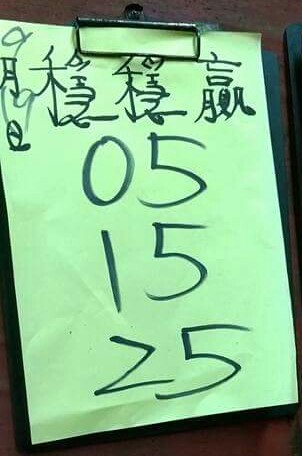 9月19日
穩穩贏
05
15
25